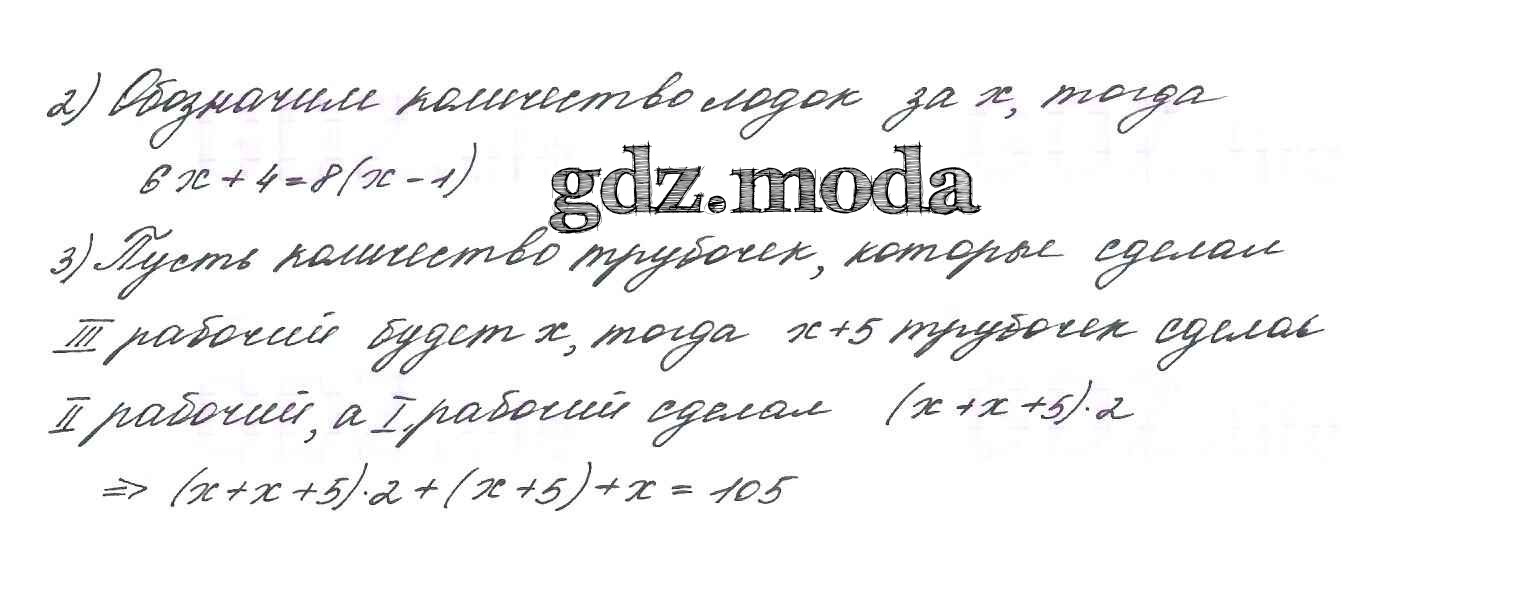 2) Обозначим количество лодок за x, тогда
6x+4=8(x-1)
gdz.moda
3) Пусть количество трубочек, которые сделал
III рабочий будет x, тогда x+5 трубочек сделав
II рабочий, а I рабочий сделал (x+x+5)·2
⇒ (x+x+5)·2+(x+5)+x=105